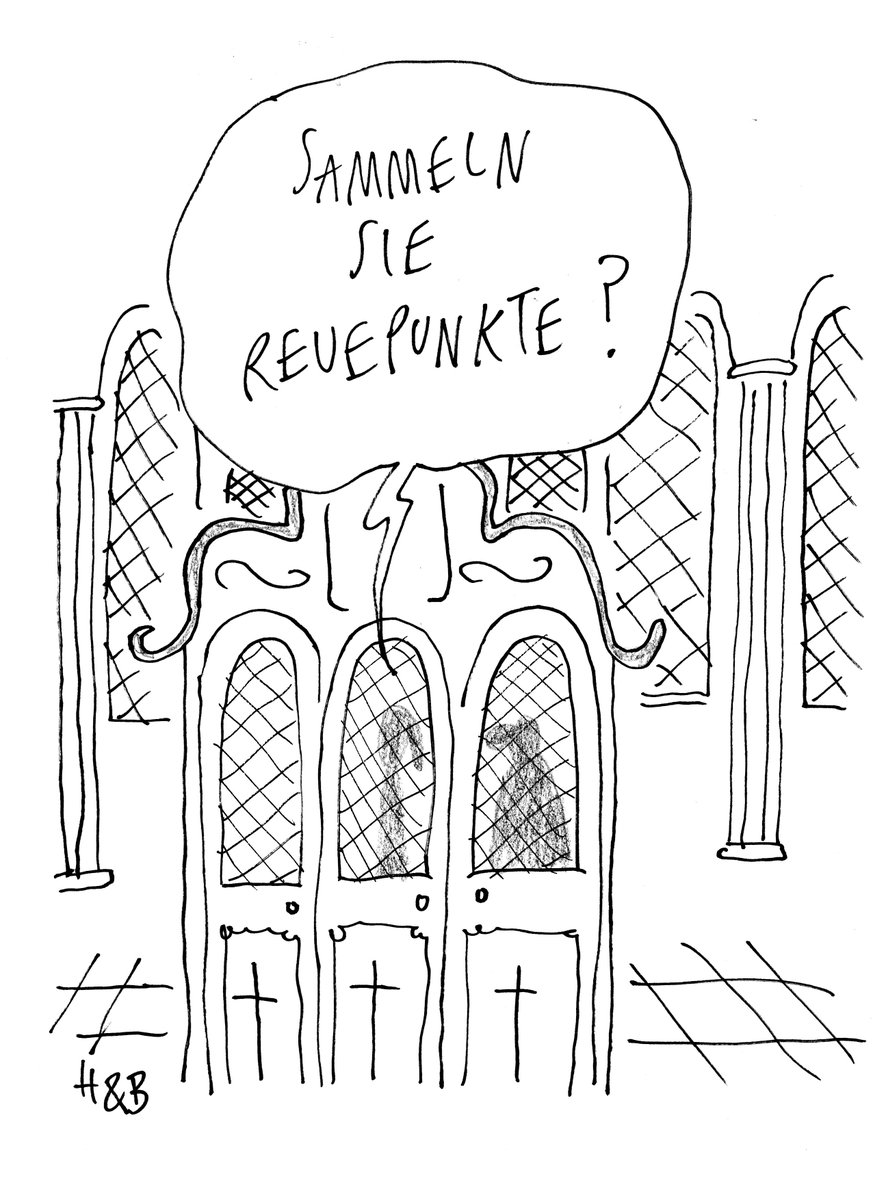 SAMMELN
SIE
REUEPUNKTE?
H&B